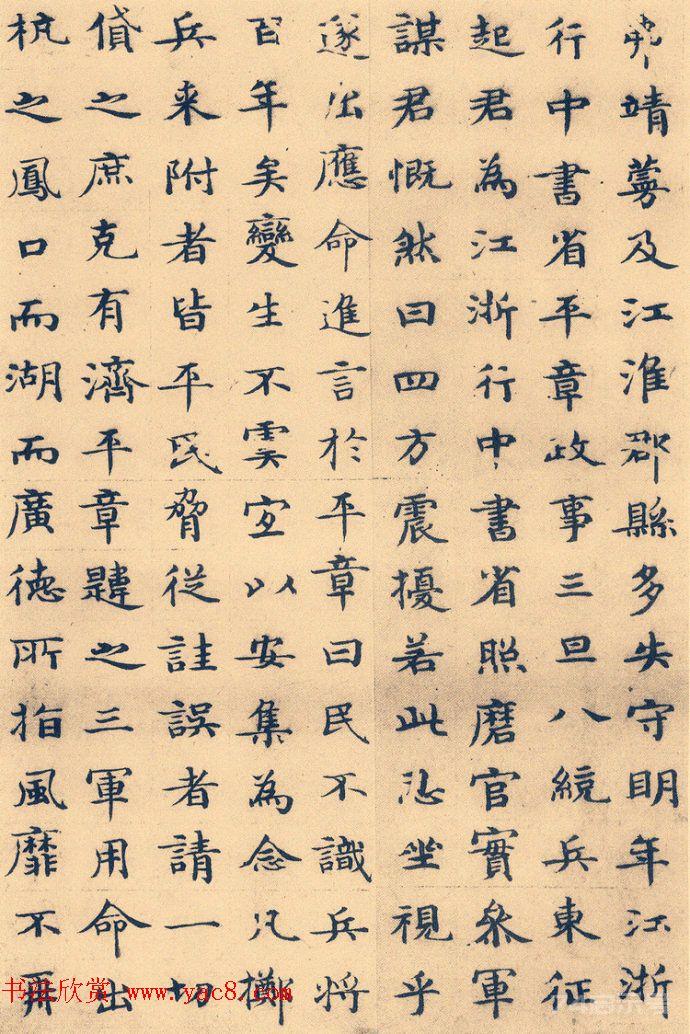 靖及江淮郡縣多失守明年江浙
行中書省平章政事三旦八統兵東征
起君為江浙行中書省照磨官實叅軍
謀君慨然曰四方震擾若此忍坐視乎
遂出應命進言於平章曰民不識兵將
百年矣變生不虞宜以安集為念凡擲
兵来附者皆平民脅從詿誤者請一切
貸之庶克有濟平章韙之三軍用命出
杭之鳳口而湖而廣德所指風靡不再
书法欣赏 www.yac8.com